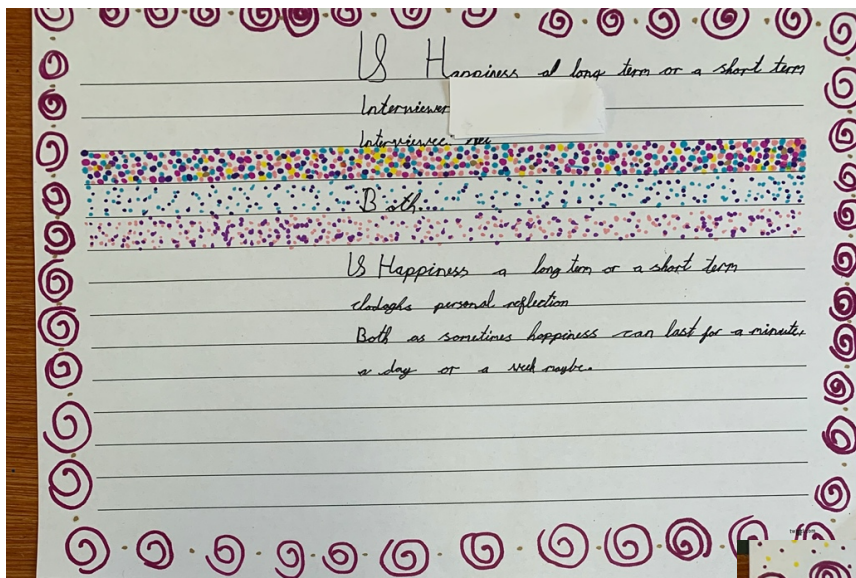 Is Happiness a long term or a short term
Interviewer
Interviewee
Both...
Is Happiness a long term or a short term
clodaghs personal reflection
Both as sometimes happiness can last for a minute,
a day or a week maybe.